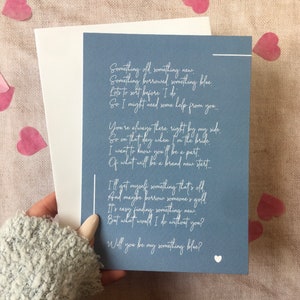 Something old something new
Something borrowed something blue
Lots to sort before I do
So I might need some help from you

You're always there right by my side
So on that day when I'm the bride
I want to know you'll be a part
Of what will be a brand new start

I'll get myself something that's old
And maybe borrow someone's gold
It's easy finding something new
But what would I do without you?

Will you be my something blue?